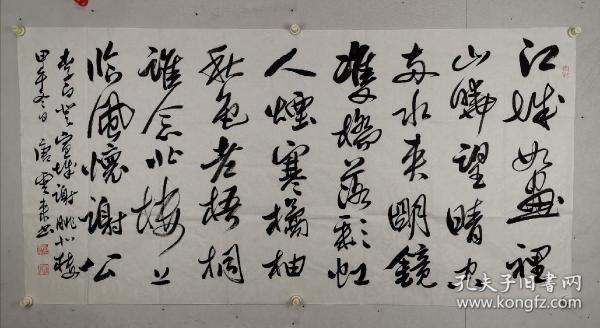 江城如画裡
山曉望晴空
兩水夾明鏡
雙橋落彩虹
人煙寒橘柚
秋色老梧桐
誰念北樓上
临風懷謝公
李白登宣城謝朓北樓
甲午冬日 唐雲來书
孔夫子旧书网
www.kongfz.com